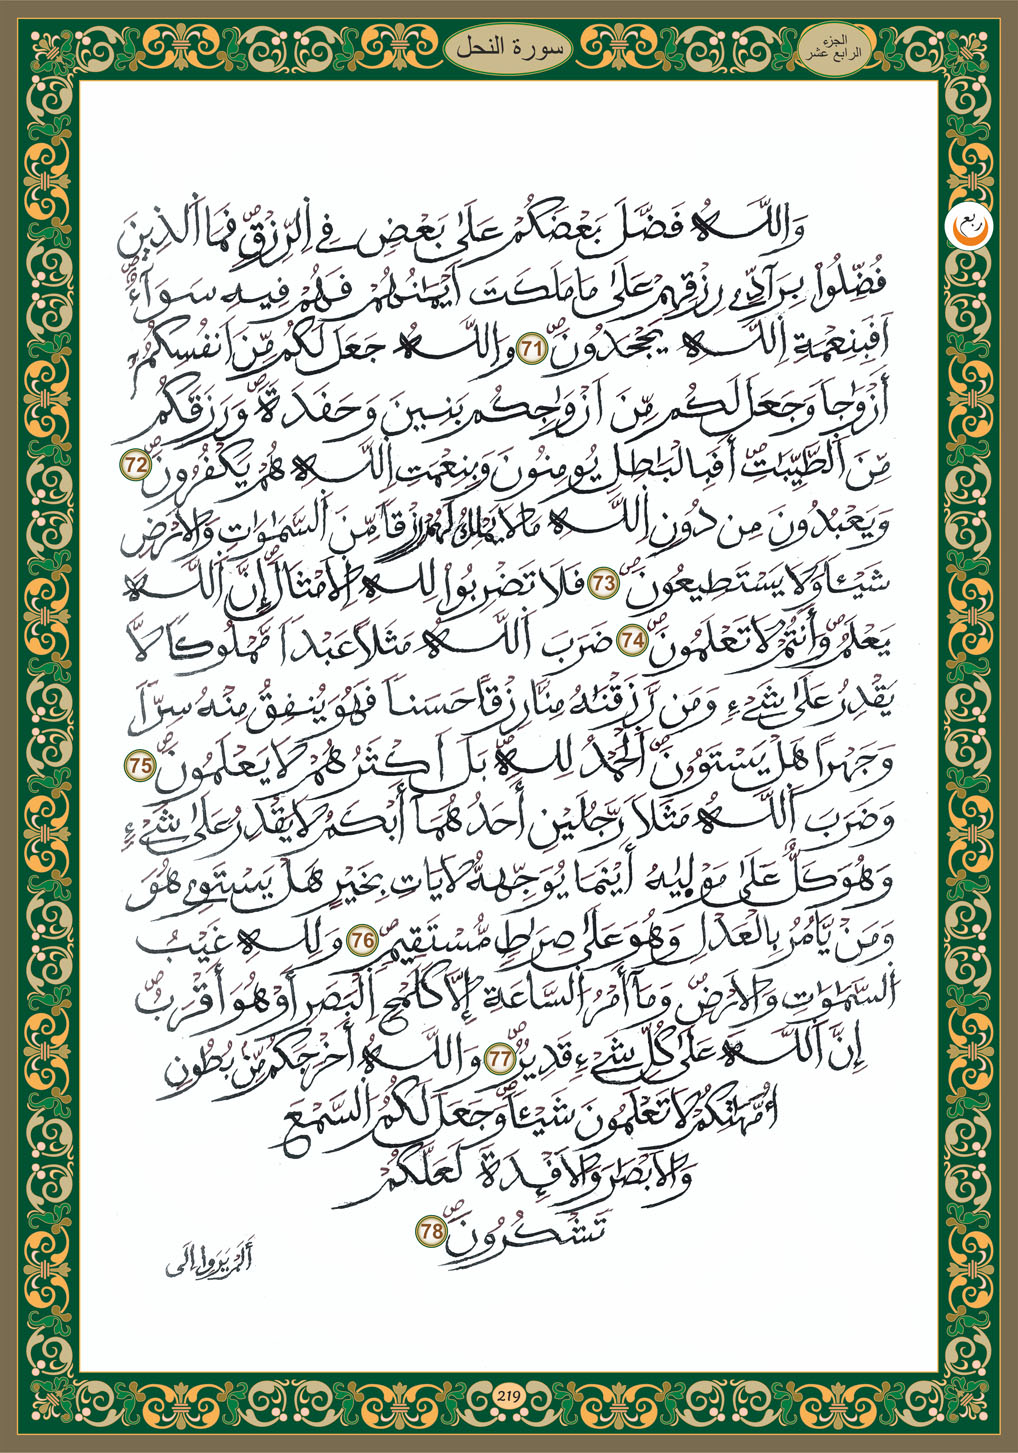 سورة النحل
الجزء
الرابع عشر
ربع
وَاللَّهُ فَضَّلَ بَعْضَكُمْ عَلَىٰ بَعْضٍ فِي الرِّزْقِ ۖ فَمَا الَّذِينَ
فُضِّلُوا بِرَآدِّي رِزْقِهِمْ عَلَىٰ مَا مَلَكَتْ أَيْمَٰنُهُمْ فَهُمْ فِيهِ سَوَآءٌ ۖ
أَفَبِنِعْمَةِ اللَّهِ يَجْحَدُونَ ۖ 71 وَاللَّهُ جَعَلَ لَكُم مِّنَ أَنفُسِكُمُ
أَزْوَٰجًا وَجَعَلَ لَكُم مِّنَ أَزْوَٰجِكُم بَنِينَ وَحَفَدَةً ۖ وَرَزَقَكُم
مِّنَ الطَّيِّبَٰتِ ۖ أَفَبِالْبَٰطِلِ يُومِنُونَ وَبِنِعْمَتِ اللَّهِ هُمْ يَكْفُرُونَ ۖ 72
وَيَعْبُدُونَ مِن دُونِ اللَّهِ مَا لَا يَمْلِكُ لَهُمْ رِزْقًا مِّنَ السَّمَٰوَٰتِ وَالْأَرْضِ
شَيْـًٔا وَلَا يَسْتَطِيعُونَ ۖ 73 فَلَا تَضْرِبُوا لِلَّهِ الْأَمْثَالَ ۖ إِنَّ اللَّهَ
يَعْلَمُ وَأَنتُمْ لَا تَعْلَمُونَ ۖ 74 ضَرَبَ اللَّهُ مَثَلًا عَبْدًا مَّمْلُوكًا لَّا
يَقْدِرُ عَلَىٰ شَيْءٍ وَمَن رَّزَقْنَٰهُ مِنَّا رِزْقًا حَسَنًا فَهُوَ يُنفِقُ مِنْهُ سِرًّا
وَجَهْرًا هَلْ يَسْتَوُونَ ۖ الْحَمْدُ لِلَّهِ ۖ بَلْ أَكْثَرُهُمْ لَا يَعْلَمُونَ ۖ 75
وَضَرَبَ اللَّهُ مَثَلًا رَّجُلَيْنِ أَحَدُهُمَا أَبْكَمُ لَا يَقْدِرُ عَلَىٰ شَيْءٍ
وَهُوَ كَلٌّ عَلَىٰ مَوْلَيٰهُ أَيْنَمَا يُوَجِّههُّ لَا يَاتِ بِخَيْرٍ هَلْ يَسْتَوِي هُوَ
وَمَنْ يَّامُرُ بِالْعَدْلِ وَهُوَ عَلَىٰ صِرَٰطٍ مُّسْتَقِيمٍ ۖ 76 وَلِلَّهِ غَيْبُ
السَّمَٰوَٰتِ وَالْأَرْضِ ۖ وَمَا أَمْرُ السَّاعَةِ إِلَّا كَلَمْحِ الْبَصَرِ أَوْ هُوَ أَقْرَبُ ۖ
إِنَّ اللَّهَ عَلَىٰ كُلِّ شَيْءٍ قَدِيرٌ ۖ 77 وَاللَّهُ أَخْرَجَكُم مِّنۢ بُطُونِ
أُمَّهَٰتِكُمْ لَا تَعْلَمُونَ شَيْـًٔا ۖ وَجَعَلَ لَكُمُ السَّمْعَ
وَالْأَبْصَٰرَ وَالْأَفْـِٔدَةَ لَعَلَّكُمْ
تَشْكُرُونَ ۖ 78
أَلَمْ يَرَوِا اِلَى
219